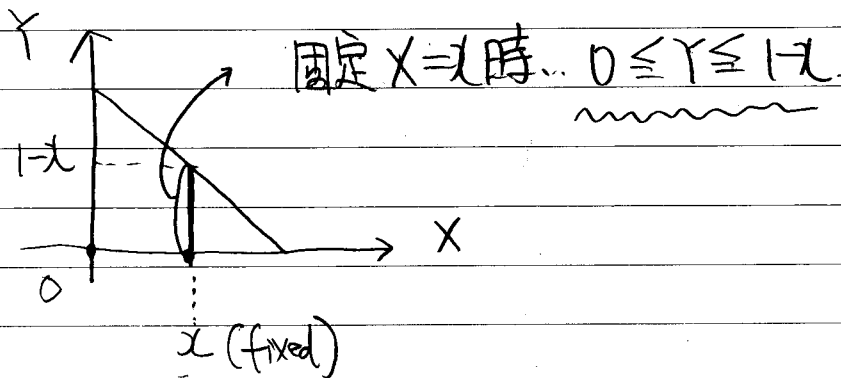 Y
固定 X=x 時… 0 ≦ Y ≦ 1-x.
1-x
X
0
x (fixed)